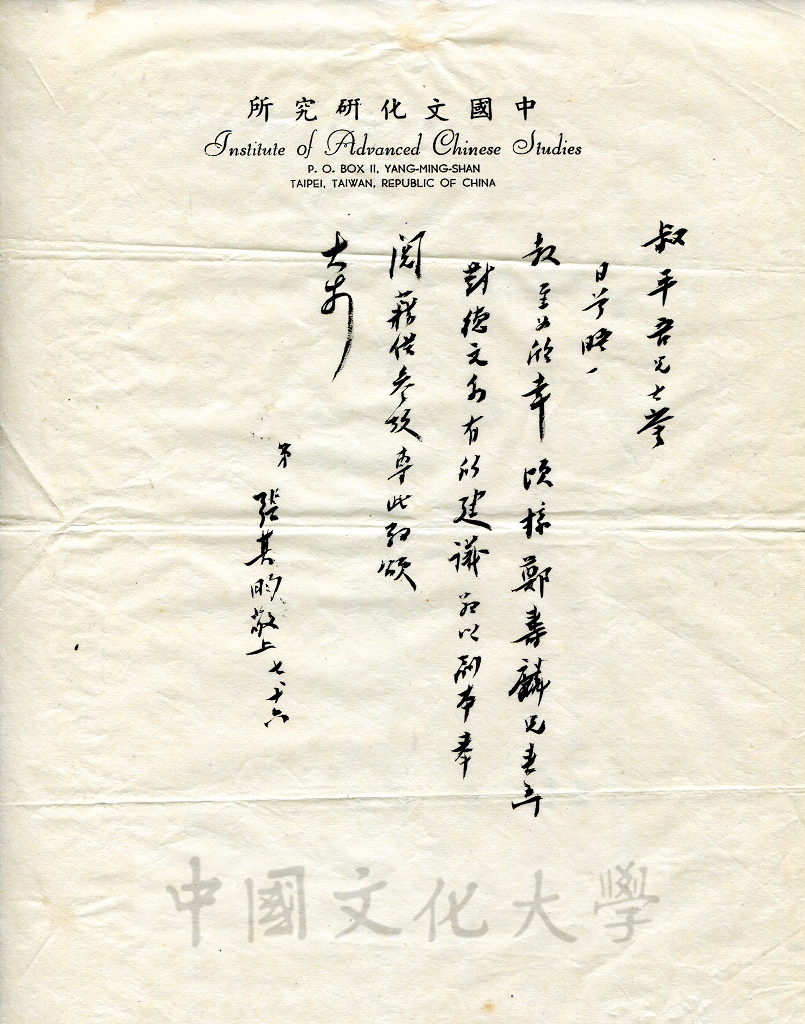 中國文化研究所
Institute of Advanced Chinese Studies
P. O. BOX II, YANG-MING-SHAN
TAIPEI, TAIWAN, REPUBLIC OF CHINA
叔平吾兄大鑒
日前晤
教至為欣幸頃接鄭壽麟兄來函
對德文系有所建議茲以副本奉
閱藉供參考專此敬頌
大安
弟
張其昀敬上七、十六
中國文化大學